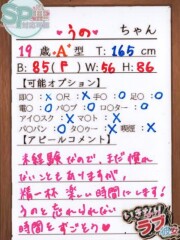 うの ちゃん
19歳・A型 T:165cm
B:85(F) W:56 H:86
【可能オプション】
即○:× ○尺:× 手○:○ 足○:○
電○:○ バ○ブ:○ ロ○ター:○
アイ○スク:× マ○ト:×
パ○パン:× 喫煙:×
【アピールコメント】
未経験なので、まだ慣れ
ないこともありますが、
精一杯楽しい時間にします!
うのと忘れられない
時間をすごそう♡